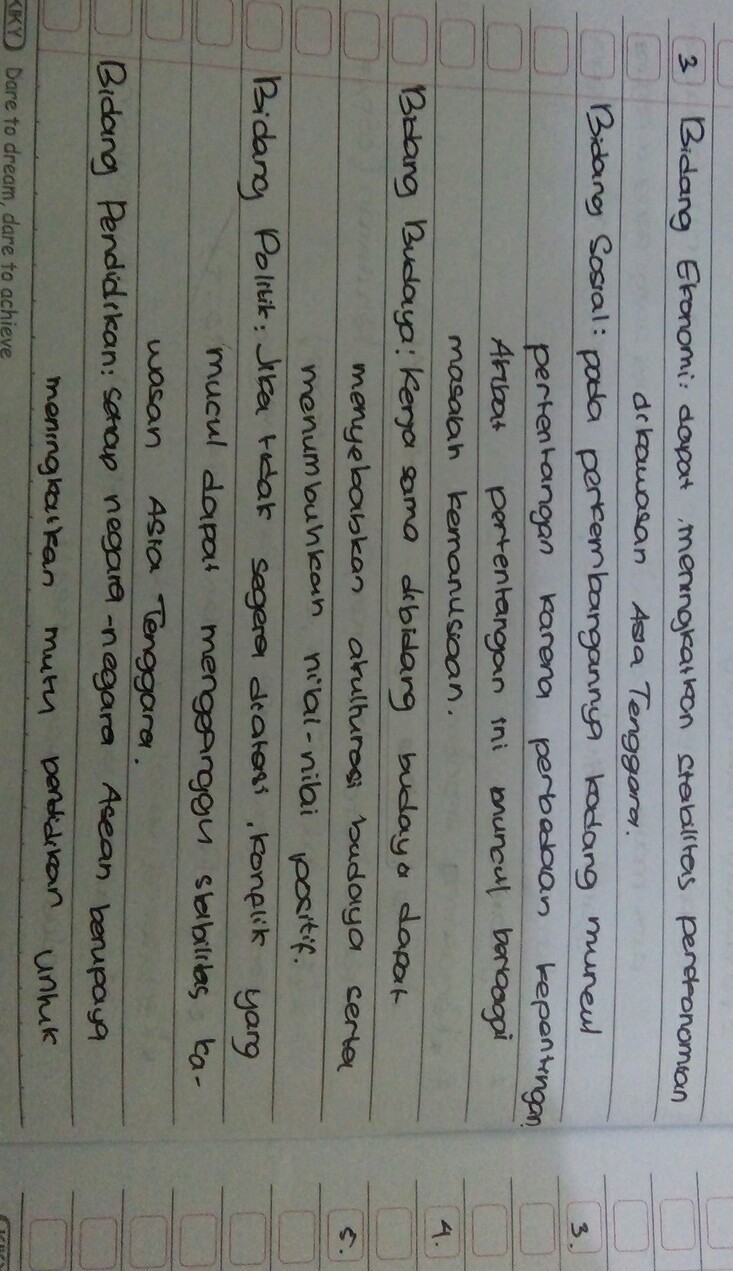 3 Bidang Ekonomi: dapat meningkatkan stabilitas perekonomian
dikawasan Asia Tenggara.
Bidang Sosial: pada perkembangannya kadang muncul
pertentangan karena perbedaan kepentingan.
Akibat pertentangan ini muncul berbagai
masalah kemanusiaan.
Bidang Budaya: kerja sama dibidang budaya dapat
menyebabkan akulturasi budaya serta
menumbuhkan nilai-nilai positif.
Bidang Politik: Jika tidak segera diatasi, konflik yang
mucul dapat mengganggu stabilitas ka-
wasan Asia Tenggara.
Bidang Pendidikan: setiap negara-negara Asean berupaya
meningkatkan mutu pendidikan untuk
KIKY Dare to dream, dare to achieve
3.
4.
5.